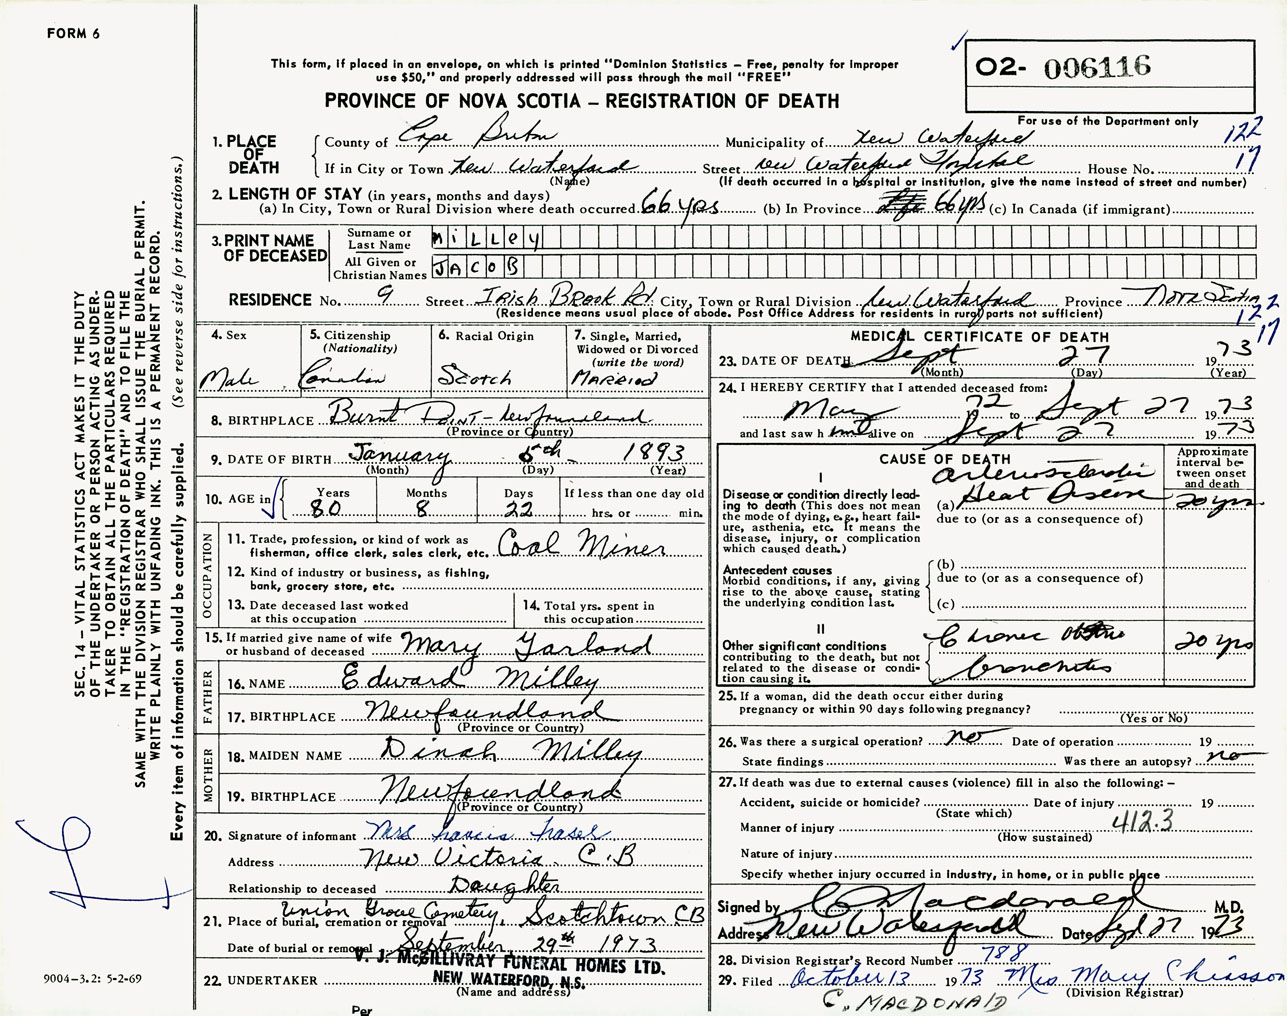 FORM 6
This form, if placed in an envelope, on which is printed "Dominion Statistics – Free, penalty for improper
use $50," and properly addressed will pass through the mail "FREE"
PROVINCE OF NOVA SCOTIA – REGISTRATION OF DEATH
O2- 006116
For use of the Department only
122
17
1. PLACE OF DEATH
County of Cape Breton Municipality of New Waterford
If in City or Town New Waterford Street New Waterford Hospital House No.
(Name) (If death occurred in a hospital or institution, give the name instead of street and number)
2. LENGTH OF STAY (in years, months and days)
(a) In City, Town or Rural Division where death occurred 66 yrs (b) In Province 66 yrs (c) In Canada (if immigrant)
3. PRINT NAME OF DECEASED
Surname or Last Name MILLEY
All Given or Christian Names JACOB
RESIDENCE No. 9 Street Irish Brook Rd City, Town or Rural Division New Waterford Province Nova Scotia
(Residence means usual place of abode. Post Office Address for residents in rural parts not sufficient)
122
17
4. Sex
Male
5. Citizenship
(Nationality)
Canadian
6. Racial Origin
Scotch
7. Single, Married,
Widowed or Divorced
(write the word)
MARRIED
8. BIRTHPLACE Burnt Point - Newfoundland
(Province or Country)
9. DATE OF BIRTH January 5th 1893
(Month) (Day) (Year)
10. AGE in
Years Months Days If less than one day old
80 8 22 hrs. or min.
OCCUPATION
11. Trade, profession, or kind of work as
fisherman, office clerk, sales clerk, etc. Coal Miner
12. Kind of industry or business, as fishing,
bank, grocery store, etc.
13. Date deceased last worked
at this occupation
14. Total yrs. spent in
this occupation
15. If married give name of wife
or husband of deceased Mary Garland
FATHER
16. NAME Edward Milley
17. BIRTHPLACE Newfoundland
(Province or Country)
MOTHER
18. MAIDEN NAME Dinah Milley
19. BIRTHPLACE Newfoundland
(Province or Country)
20. Signature of informant Mrs Francis Fraser
Address New Victoria. C.B
Relationship to deceased Daughter
21. Place of burial, cremation or removal Union Grove Cemetery, Scotchtown CB
Date of burial or removal September 29th 1973
22. UNDERTAKER
V. J. McGILLIVRAY FUNERAL HOMES LTD.
NEW WATERFORD, N.S.
(Name and address)
Per
MEDICAL CERTIFICATE OF DEATH
23. DATE OF DEATH Sept 27 1973
(Month) (Day) (Year)
24. I HEREBY CERTIFY that I attended deceased from:
May 72 to Sept 27 1973
and last saw h im alive on Sept 27 1973
CAUSE OF DEATH
Approximate interval between onset and death
I
Disease or condition directly leading to death (This does not
mean the mode of dying, e.g., heart failure, asthenia, etc. It means the
disease, injury, or complication
which caused death.)
Arteriosclerotic
(a) Heart Disease 20 yrs
due to (or as a consequence of)
Antecedent causes
Morbid conditions, if any, giving
rise to the above cause, stating
the underlying condition last.
(b)
due to (or as a consequence of)
(c)
II
Other significant conditions
contributing to the death, but not
related to the disease or condition causing it.
Chronic
bronchitis
20 yrs
25. If a woman, did the death occur either during
pregnancy or within 90 days following pregnancy?
(Yes or No)
26. Was there a surgical operation? no Date of operation 19
State findings Was there an autopsy? no
27. If death was due to external causes (violence) fill in also the following: –
Accident, suicide or homicide? Date of injury 19
(State which)
Manner of injury 412.3
(How sustained)
Nature of injury
Specify whether injury occurred in industry, in home, or in public place
Signed by C Macdonald M.D.
Address New Waterford Date Sept 27 1973
28. Division Registrar's Record Number 788
29. Filed October 13 1973 Mrs Mary Chiasson
(Division Registrar)
C. MACDONALD
SEC. 14 – VITAL STATISTICS ACT MAKES IT THE DUTY
OF THE UNDERTAKER OR PERSON ACTING AS UNDER-
TAKER TO OBTAIN ALL THE PARTICULARS REQUIRED
IN THE "REGISTRATION OF DEATH" AND TO FILE THE
SAME WITH THE DIVISION REGISTRAR WHO SHALL ISSUE THE BURIAL PERMIT.
WRITE PLAINLY WITH UNFADING INK. THIS IS A PERMANENT RECORD.
Every item of information should be carefully supplied. (See reverse side for instructions.)
9004–3.2: 5-2-69